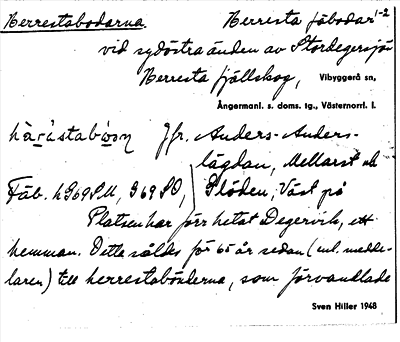 Herrestabodarna. Herresta fäbodar 1-2
vid sydöstra änden av Stordegersjön
Herresta fjällskog, Vibyggerå sn,
Ångermanl. s. doms. tg., Västernorrl. l.
Jfr. Anders-Anders-
lägdan, Mellarst och
Fäb. h369SU, 369SO, Slöden, Väst på
Platsen har förr hetat Degervik, ett
hemman. Detta såldes för 65 år sedan (enl. medde-
laren) till herrestabönderna, som förvandlade
Sven Hiller 1948